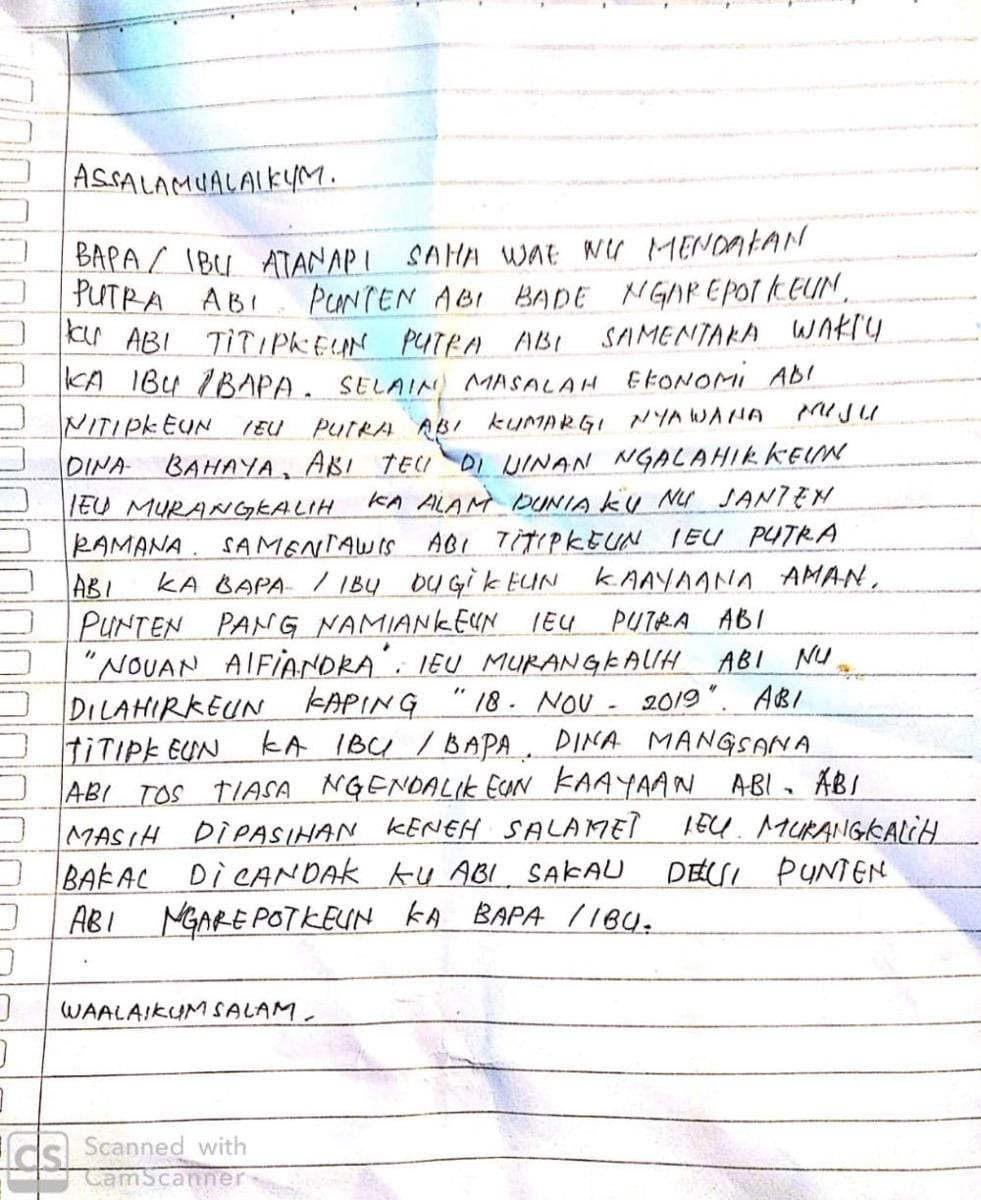 ASSALAMUALAIKUM.
BAPA / IBU ATANAPI SAHA WAE NU MENDAKAN
PUTRA ABI. PUNTEN ABI BADE NGAREPOTKEUN.
KU ABI TITIPKEUN PUTRA ABI SAMENTARA WAKTU
KA IBU /BAPA. SELAIN MASALAH EKONOMI ABI
NITIPKEUN IEU PUTRA ABI KUMARGI NYAWANA NUJU
DINA BAHAYA, ABI TEU DI NGALAHIRKEUN
IEU MURANGKALIH KA ALAM DUNIA KU NU JANTEN
RAMANA. SAMENTAWIS ABI TITIPKEUN IEU PUTRA
ABI KA BAPA / IBU DUGIKEUN KAAYAANA AMAN.
PUNTEN PANG NAMIANKEUN IEU PUTRA ABI
"NOUAN AlFiANDRA". IEU MURANGKALIH ABI NU
DILAHIRKEUN KAPING "18 - NOV - 2019". ABI
TITIPKEUN KA IBU / BAPA. DINA MANGSANA
ABI TOS TIASA NGENDALIKEUN KAAYAAN ABI. ABI
MASIH DIPASIHAN KENEH SALAMET IEU MURANGKALIH
BAKAL DICANDAK KU ABI. SAKALI DEUI PUNTEN
ABI NGAREPOTKEUN KA BAPA / IBU.
WAALAIKUMSALAM.
CS Scanned with
CamScanner